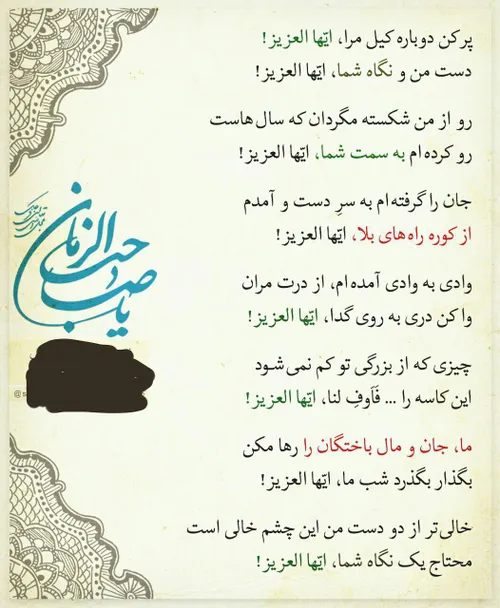 پرکن دوباره کیل مرا، ایّها العزیز!
دست من و نگاه شما، ایّها العزیز!
رو از من شکسته مگردان که سال هاست
رو کرده ام به سمت شما، ایّها العزیز!
جان را گرفته ام به سرِ دست و آمدم
از کوره راه های بلا، ایّها العزیز!
وادی به وادی آمده ام، از درت مران
وا کن دری به روی گدا، ایّها العزیز!
چیزی که از بزرگی تو کم نمی شود
این کاسه را ... فَاَوفِ لنا، ایّها العزیز!
ما، جان و مال باختگان را رها مکن
بگذار بگذرد شب ما، ایّها العزیز!
خالی تر از دو دست من این چشم خالی است
محتاج یک نگاه شما، ایّها العزیز!
یا صاحب الزمان